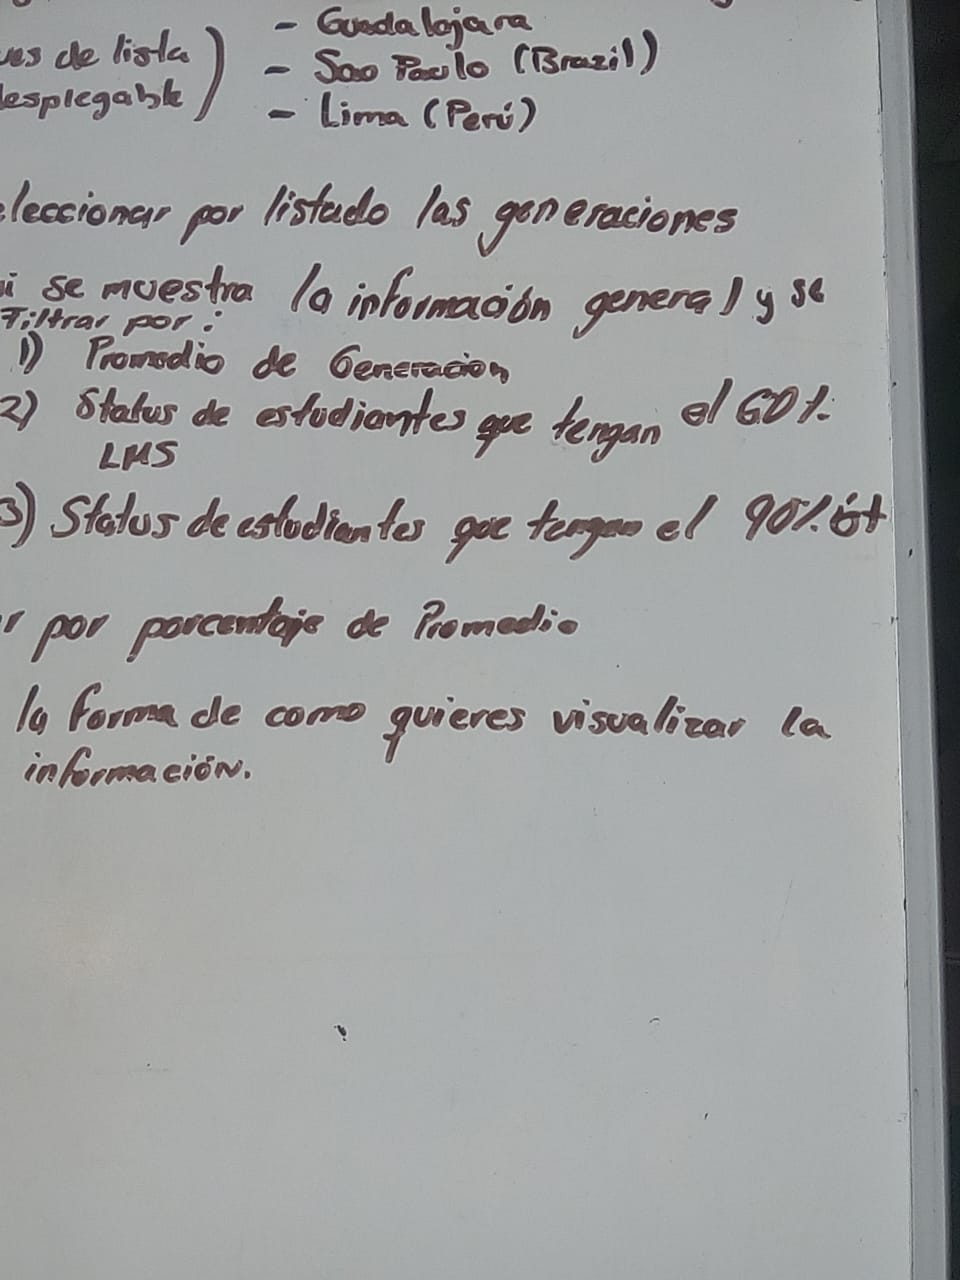 - Guadalajara
ves de lista) - Sao Paulo (Brazil)
desplegable) - Lima (Perú)
eleccionar por listado las generaciones
i se muestra la información general y se
Filtrar por:
1) Promedio de Generación
2) Status de estudiantes que tengan el 60%.
LMS
3) Status de estudiantes que tengan el 90% ó+
r por porcentaje de Promedio
la forma de como quieres visualizar la
información.